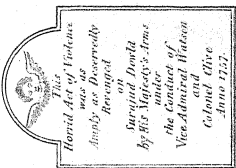 This
Horrid Act of Violence
was as
Amply as Deservedly
Revenged
on
Surajud Dowla
by His Majesty's Arms
under
the Conduct of
Vice Admiral Watson
and
Colonel Clive
Anno 1757.